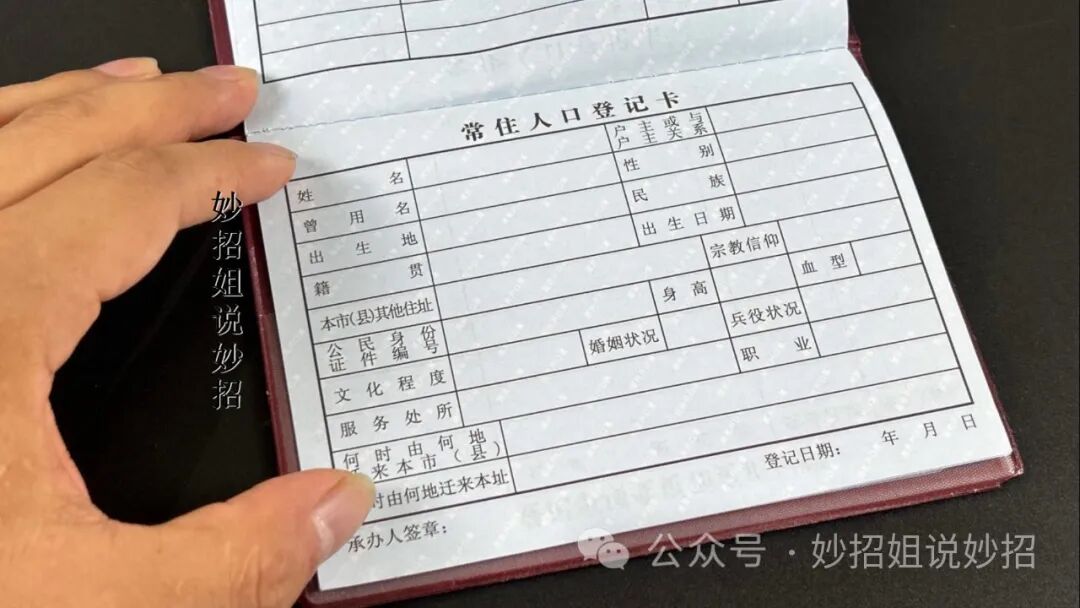 常住人口登记卡
姓名
户主或与
户主关系
曾用名
性别
出生地
民族
籍贯
出生日期
本市(县)其他住址
宗教信仰
公民身份
证件编号
身高
血型
文化程度
婚姻状况
兵役状况
服务处所
职业
何时由何地
来本市(县)
时由何地迁来本址
承办人签章:
登记日期:
年 月 日
妙招姐说妙招
公众号·妙招姐说妙招